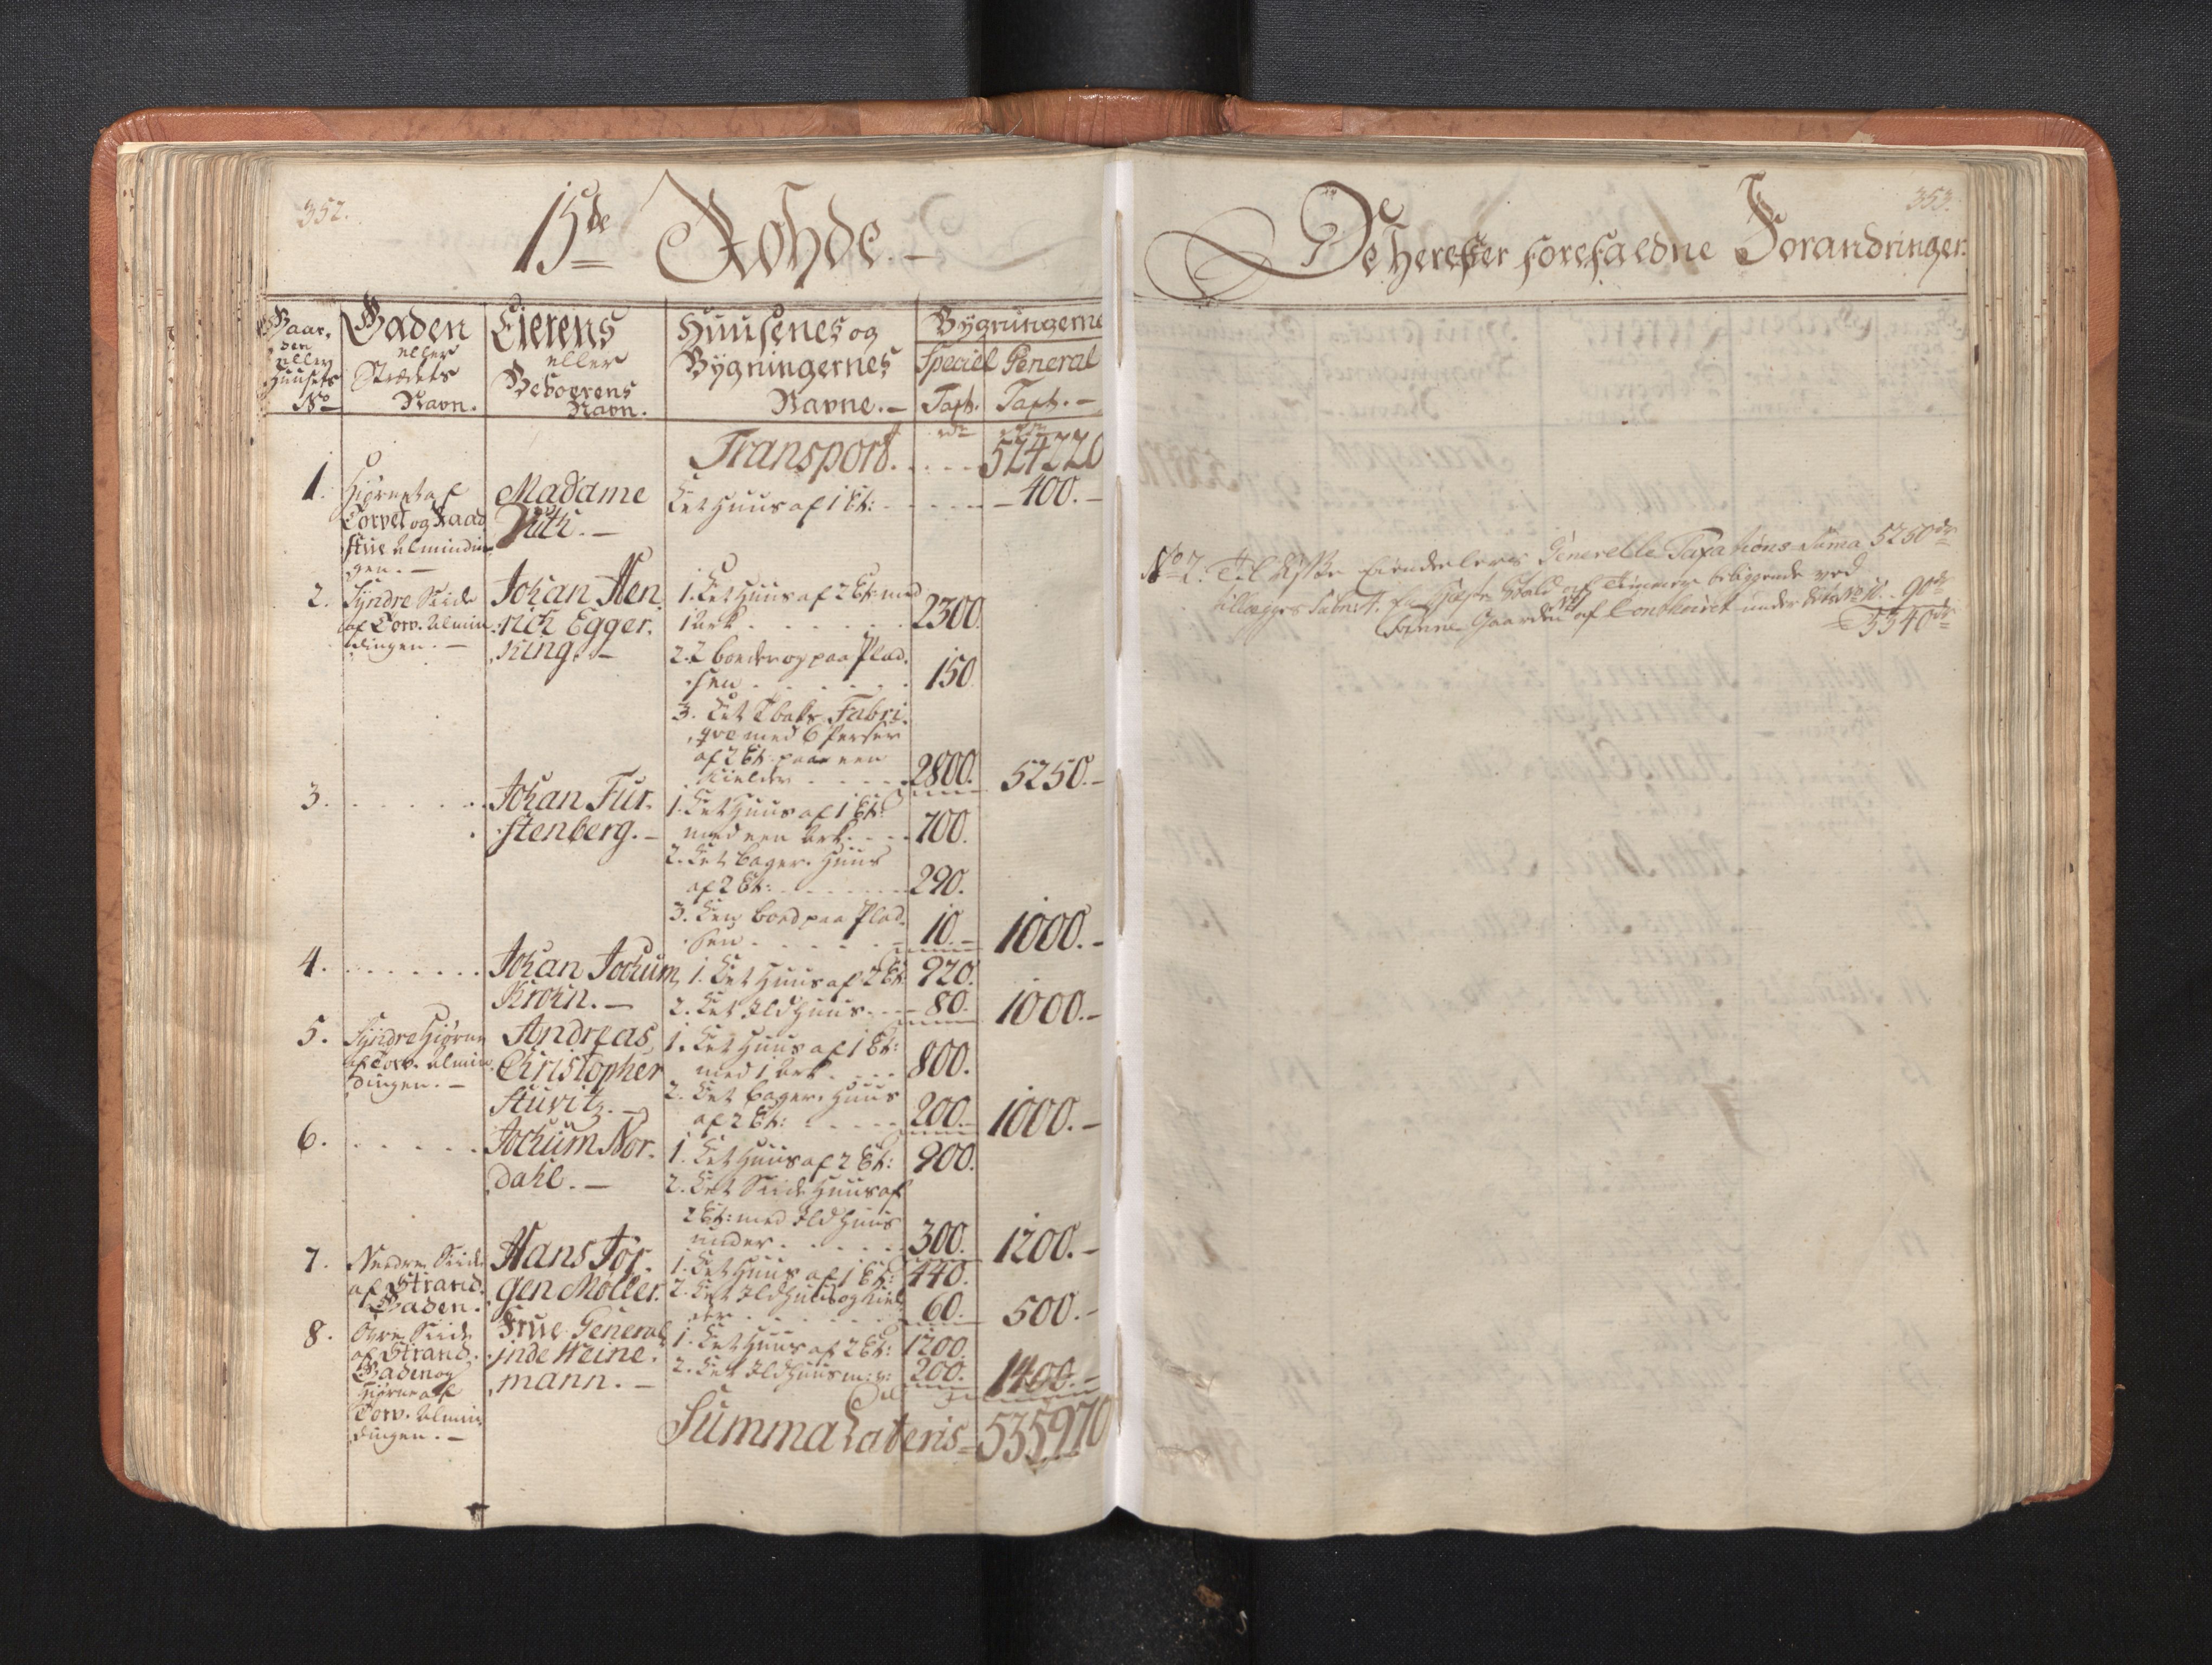 352.
15de Rohde.
Gaar-
den
eller
Huusets
No
Gaden
eller
Strædets
Navn.
Eierens
eller
Beboerens
Navn.
Huusenes og
Bygningernes
Navne.
Bygningerne
Speciel General
Taxt. Taxt.
rdr rdr
Transport 524220
1. Hiørnet af
Torvet og Raad
stue Almindin-
gen.
Madame
Eet Huus af 1 Et: 400.
2. Syndre Siide
af Torv-Almin-
dingen.
Johan Hen-
rich Egger-
king.
1. Eet Huus af 2 Et: med
1 Ark 2300.
2. 2 boeder og paa Plad-
sen 150
3. Eet Tobaks Fabri-
qve med 6 Perser
af 2 Et: paa een
Kielder 2800. 5250.
3. Johan Für-
stenberg.
1. Eet Huus af 1 Et:
med een Ark 700.
2. Eet bager-Huus
af 2 Et: 290.
3. Een boed paa Plad-
sen 10. 1000.
4. Johan Jochum
Krohn.
1. Eet Huus af 2 Et: 920.
2. Eet Ildhuus 80. 1000.
5. Syndre Hiørne
af Torv-Almin-
dingen.
Andreas
Christopher
Stuvitz.
1. Eet Huus af 1 Et:
med 1 Ark 800.
2. Eet bager-Huus
af 2 Et: 200. 1000.
6. Jochum Nor-
dahl.
1. Eet Huus af 2 Et: 900.
2. Eet Siide Huus af
2 Et: med Ildhuus
under 300. 1200.
7. Neodre Siide
af Strand-
Gaden.
Hans Jør-
gen Møller.
1. Eet Huus af 1 Et: 440.
2. Eet Ildhuus og Kiel-
der 60. 500.
8. Øvre Siide
af Strand-
Gaden og
Hiørne af
Torv-Almin-
dingen.
Frue General-
inde Heine-
mann.
1. Eet Huus af 2 Et: 1200.
2. Eet Ildhuus m: v: 200. 1400.
Summa Lateris 535970
353.
De herefter forefaldne Forandringer.
No 2. Til Eiendeelens Generelle Taxations Summa 5250 dr
tillægges Stald af Tømmer beliggende ved
Gaarden af under No 90 dr
5340 dr